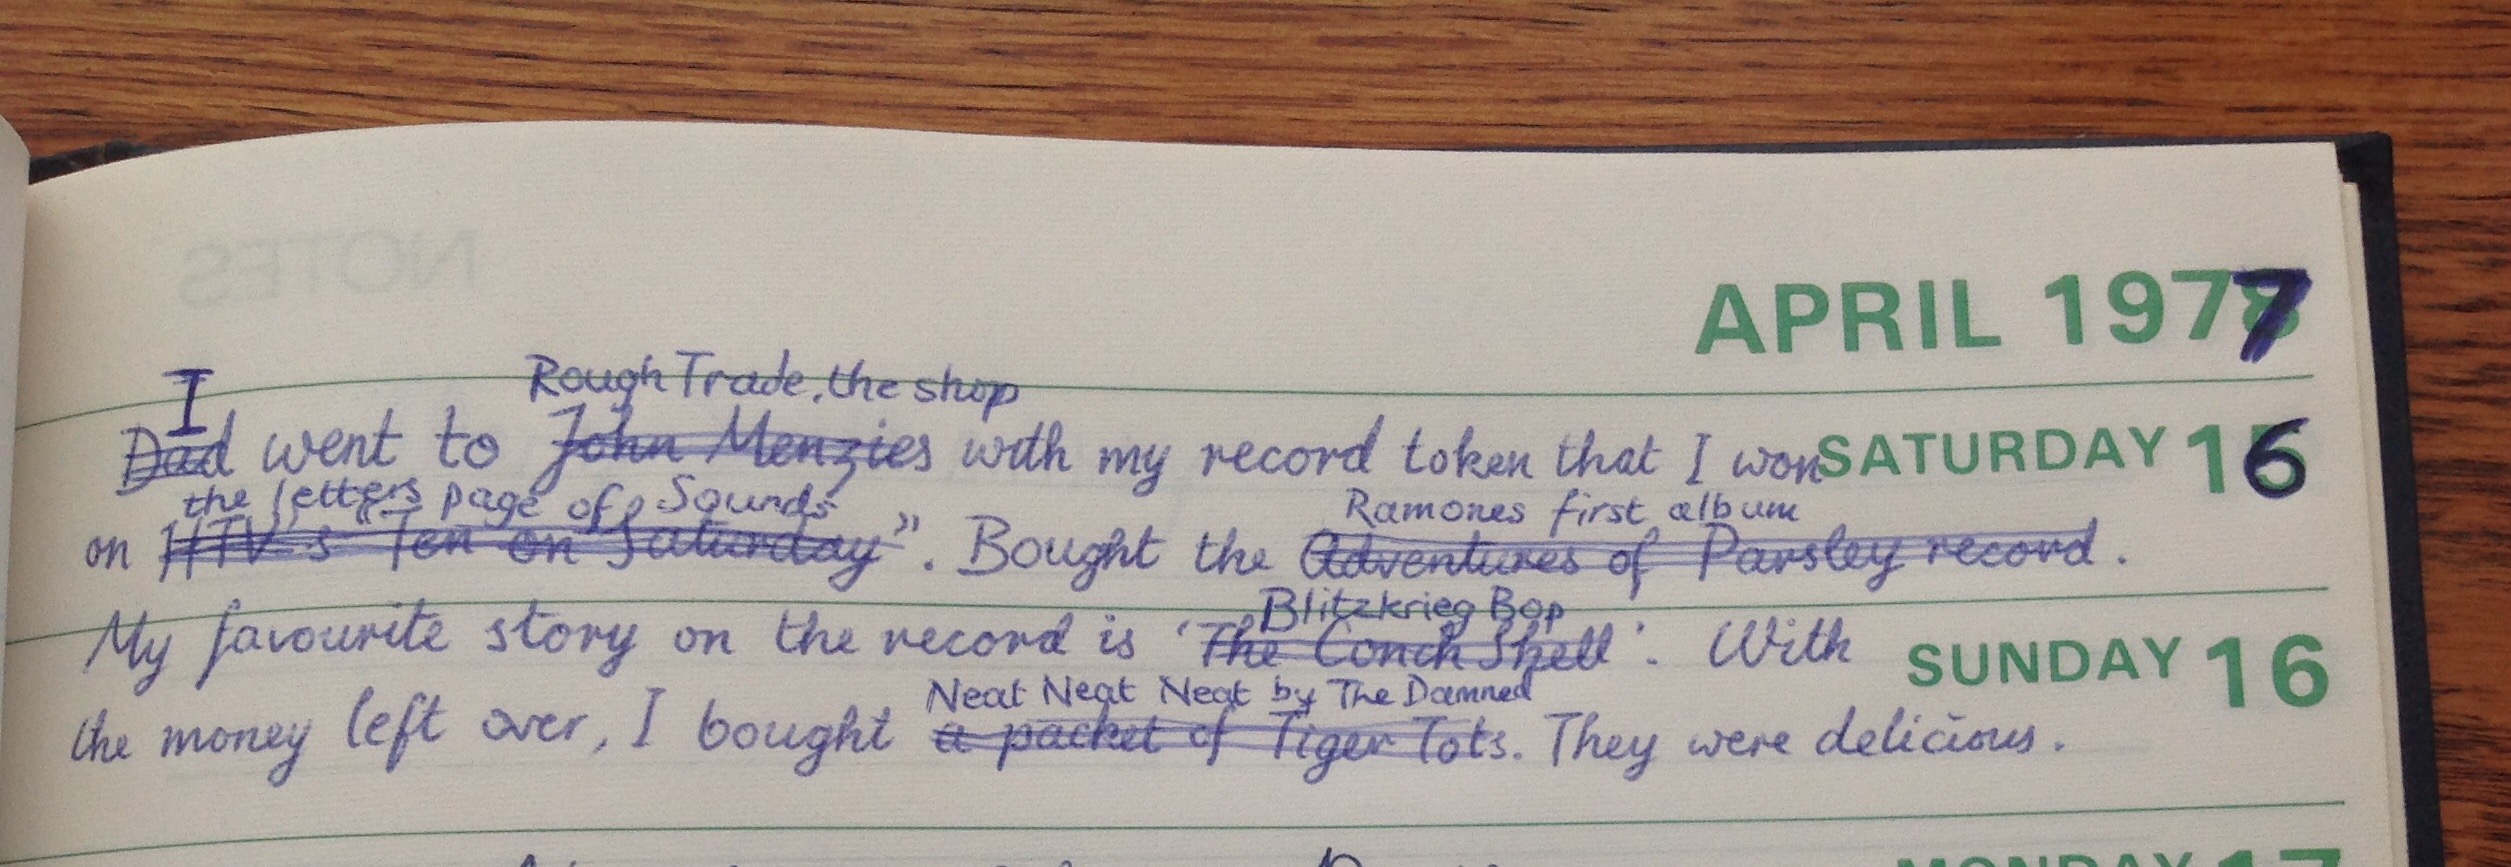 NOTES
APRIL 1977
I Rough Trade, the shop
Dad went to John Menzies with my record token that I won SATURDAY 16
the letters page of Sounds Ramones first album
on HTV's Ten on Saturday". Bought the Adventures of Parsley record.
Blitzkrieg Bop
My favourite story on the record is 'The Conch Shell'. With SUNDAY 16
Neat Neat Neat by The Damned
the money left over, I bought a packet of Tiger Tots. They were delicious.
MONDAY 17